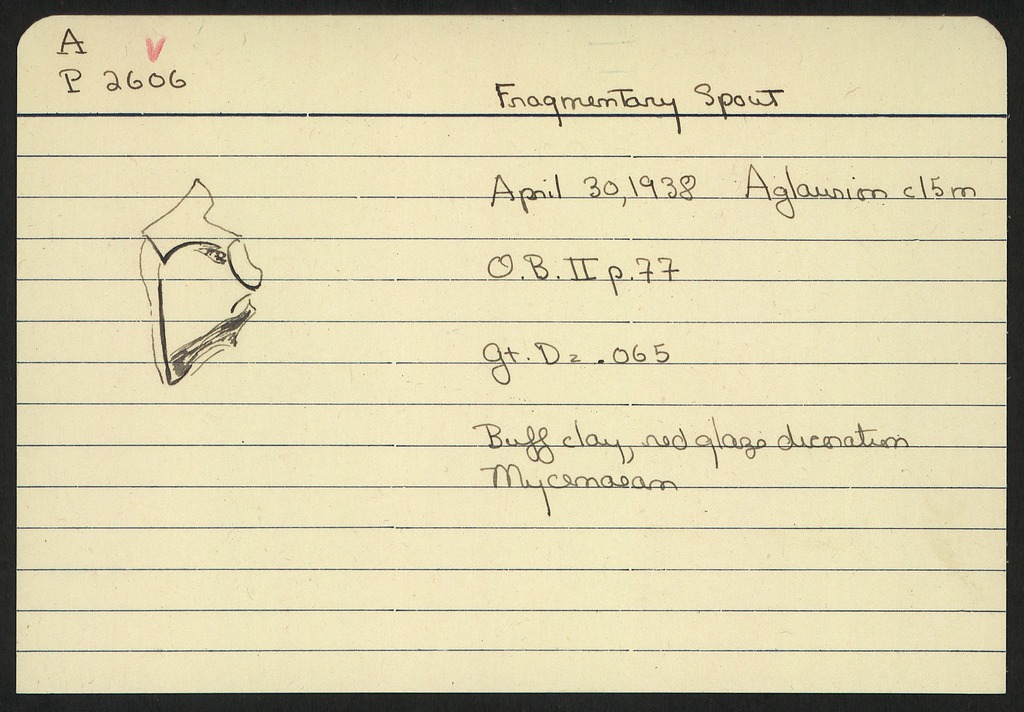 A
P 2606
Fragmentary Spout
April 30, 1938 Aglaurion c15m
O.B. II p. 77
gt. D = .065
Buff clay, red glaze decoration
Mycenaean